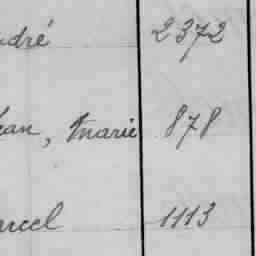 ndré 2372
ean, Marie 878
arcel 1113